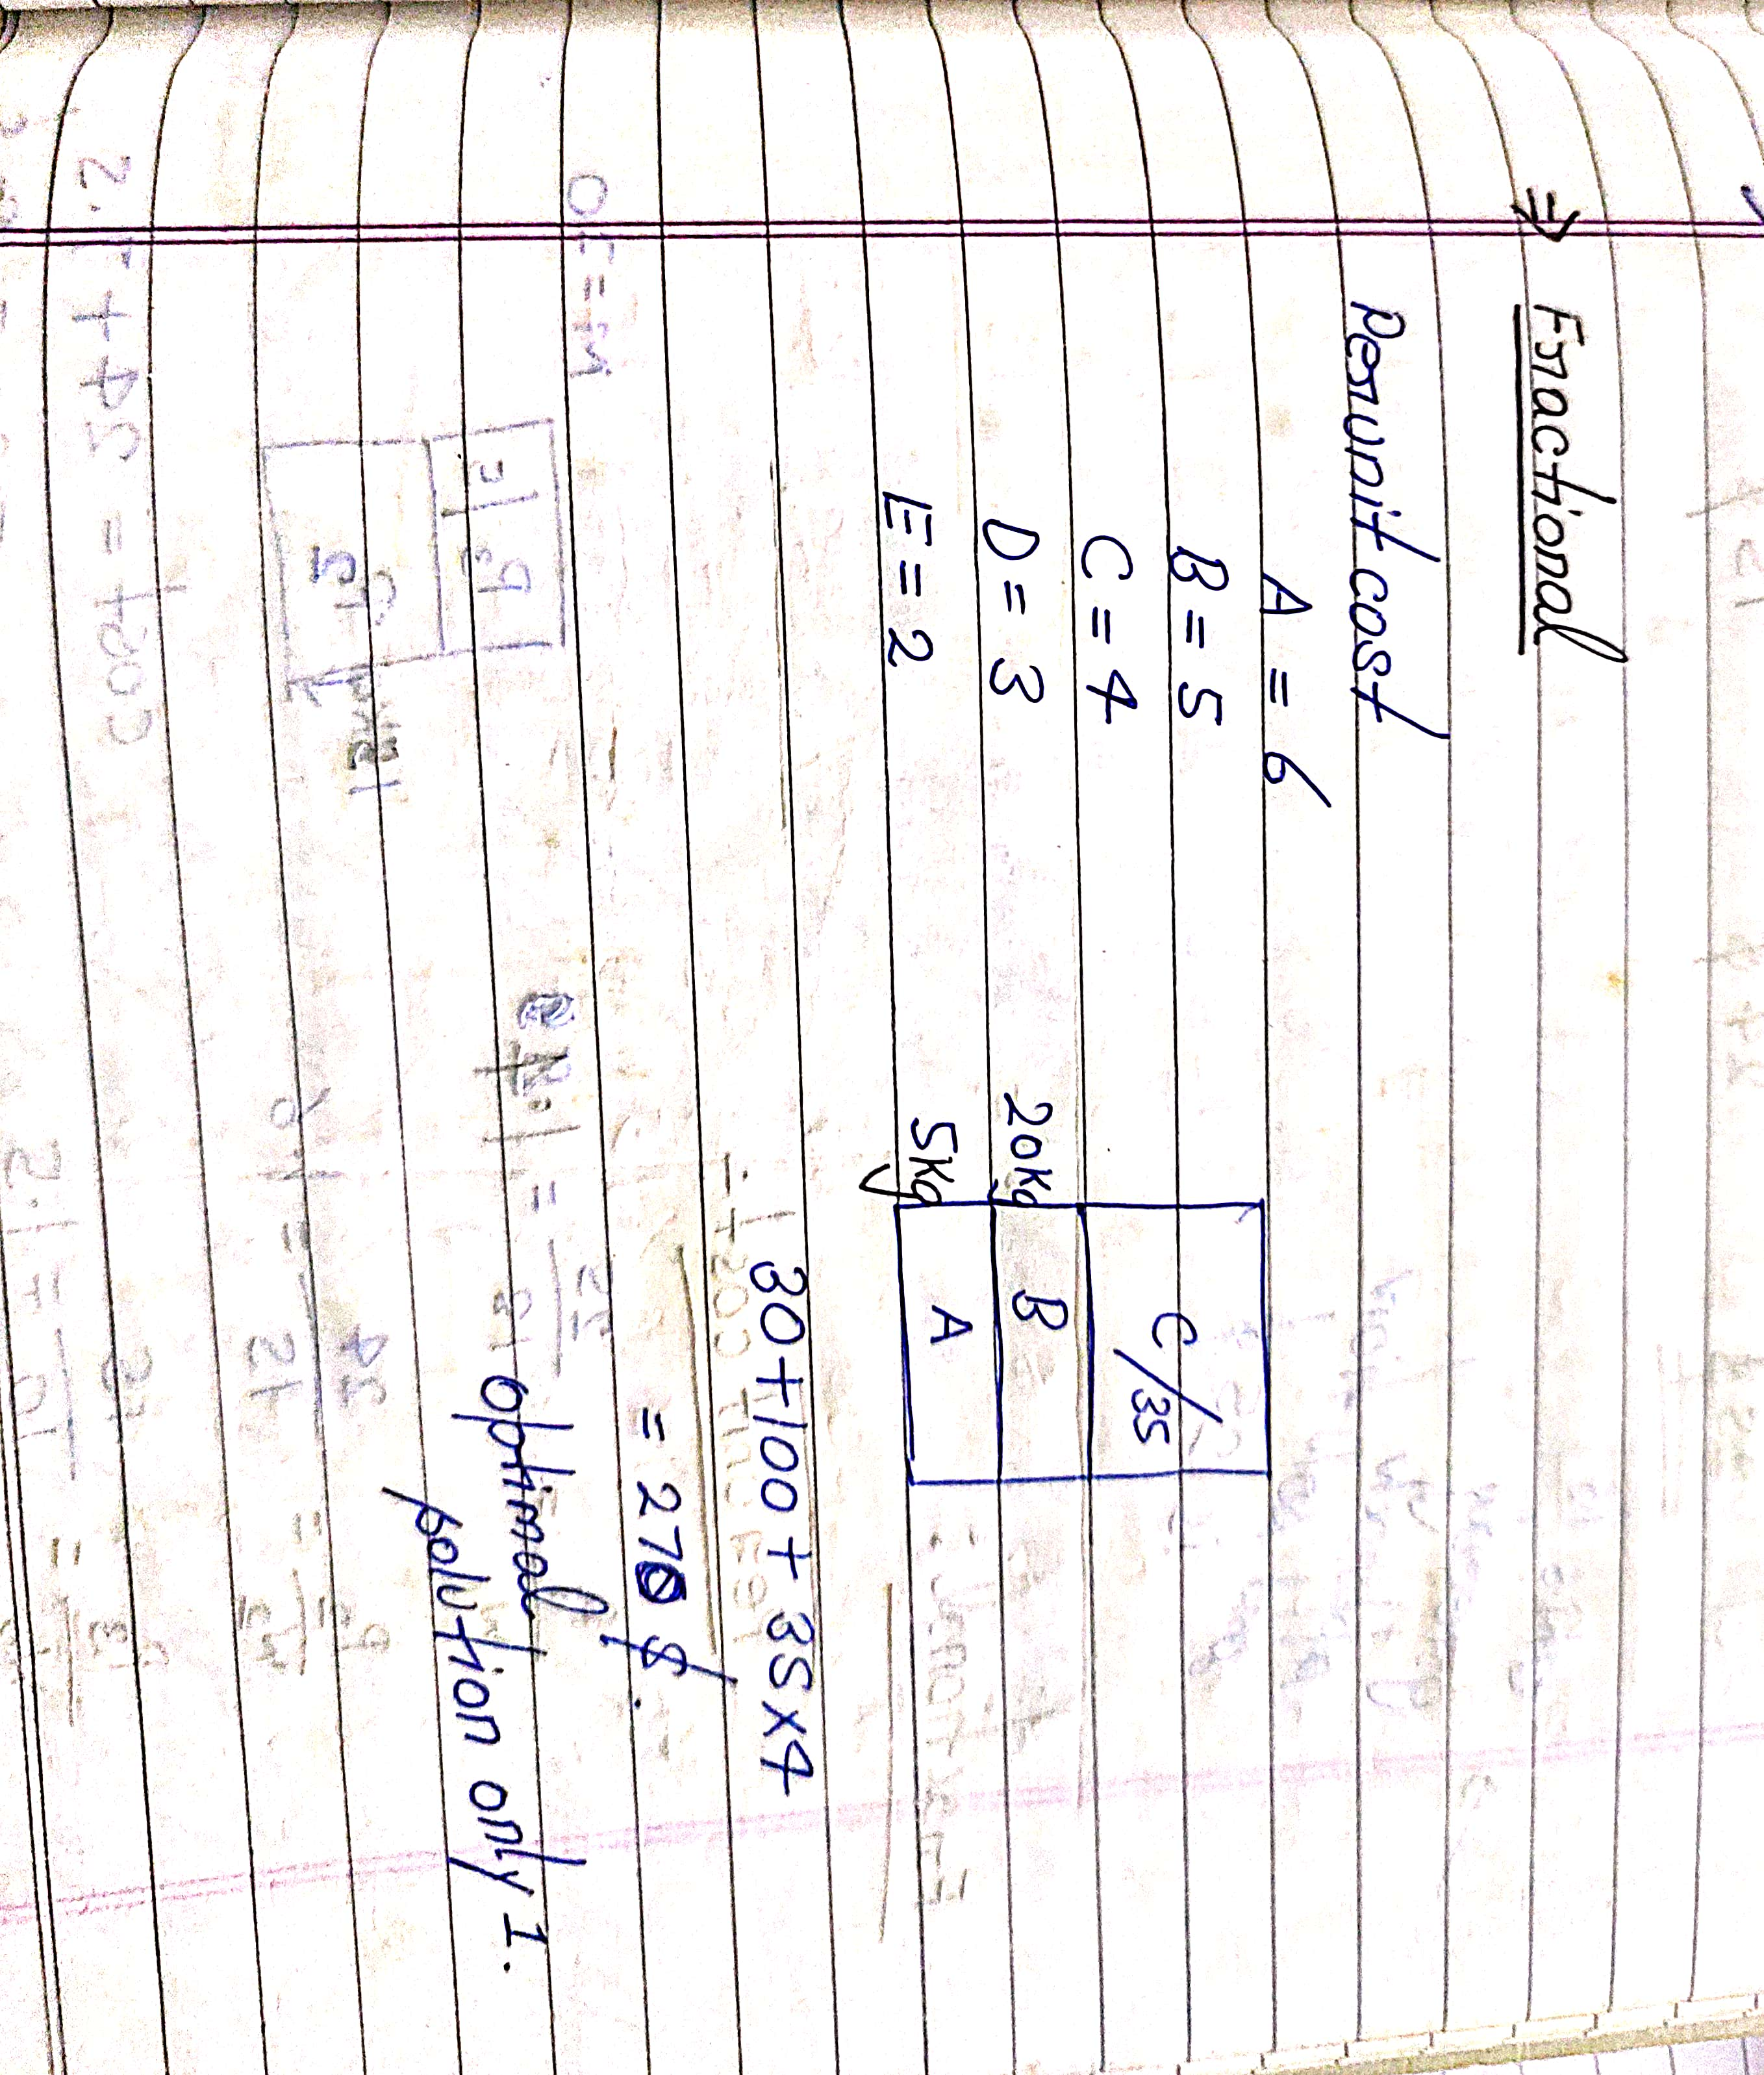 ⇒ Fractional
Perunit cost
A = 6
B = 5
C = 4
D = 3
E = 2
C/35
20kg B
5kg A
30+100+35x4
= 270 $.
optimal
solution only 1.